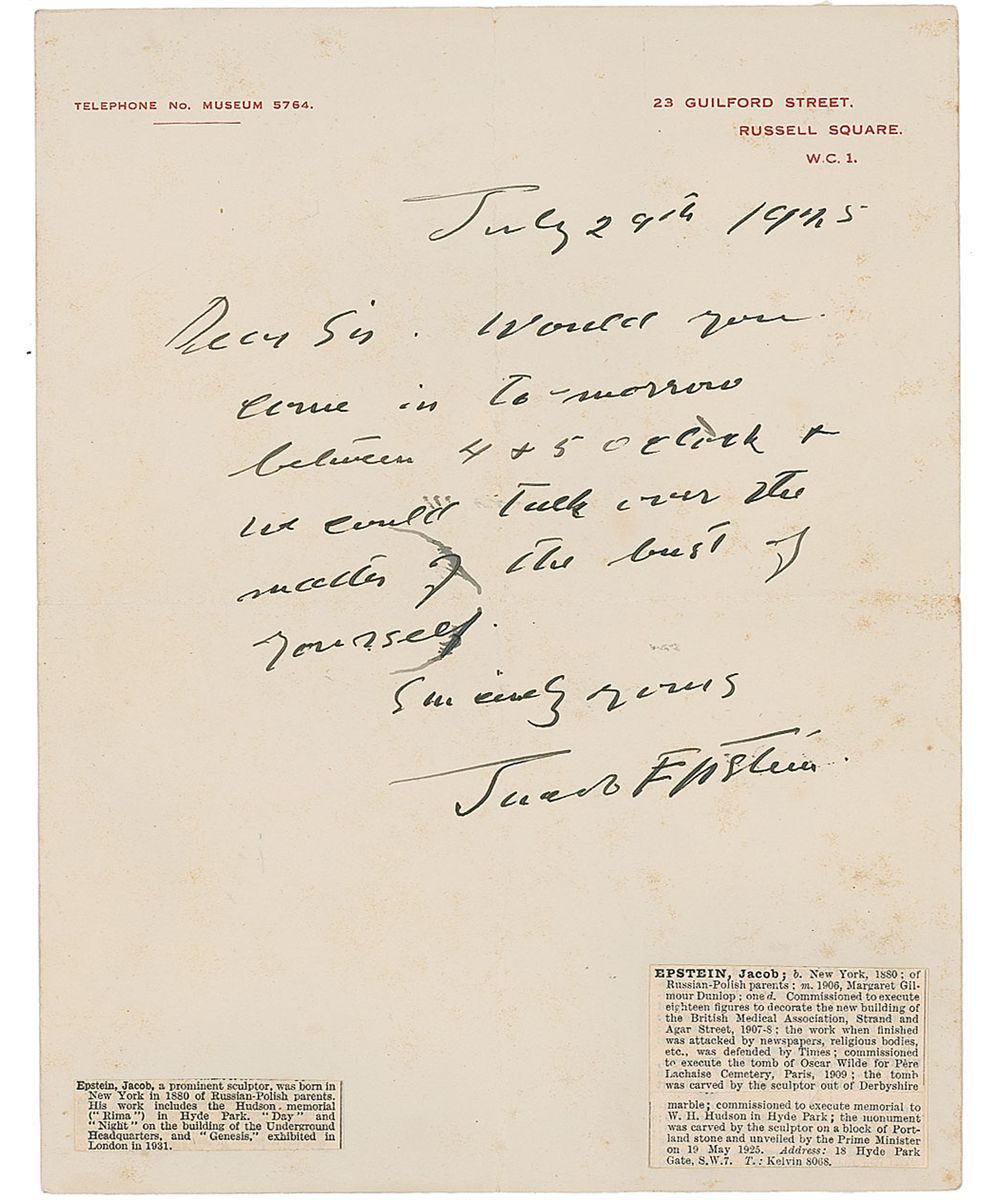 TELEPHONE No. MUSEUM 5764.
23 GUILFORD STREET,
RUSSELL SQUARE.
W.C. 1.
July 29th 1925
Dear Sir. Would you
come in to-morrow
between 4 & 5 o'clock &
we could talk over the
matter of the bust of
yourself.
Sincerely yours
Jacob Epstein.
Epstein, Jacob, a prominent sculptor, was born in
New York in 1880 of Russian-Polish parents.
His work includes the Hudson memorial
("Rima") in Hyde Park. "Day" and
"Night" on the building of the Underground
Headquarters, and "Genesis," exhibited in
London in 1931.
EPSTEIN, Jacob; b. New York, 1880; of
Russian-Polish parents; m. 1906, Margaret Gil-
mour Dunlop; one d. Commissioned to execute
eighteen figures to decorate the new building of
the British Medical Association, Strand and
Agar Street, 1907-8; the work when finished
was attacked by newspapers, religious bodies,
etc., was defended by Times; commissioned
to execute the tomb of Oscar Wilde for Père
Lachaise Cemetery, Paris, 1909; the tomb
was carved by the sculptor out of Derbyshire
marble; commissioned to execute memorial to
W. H. Hudson in Hyde Park; the monument
was carved by the sculptor on a block of Port-
land stone and unveiled by the Prime Minister
on 19 May 1925. Address: 18 Hyde Park
Gate, S.W.7. T.: Kelvin 8068.